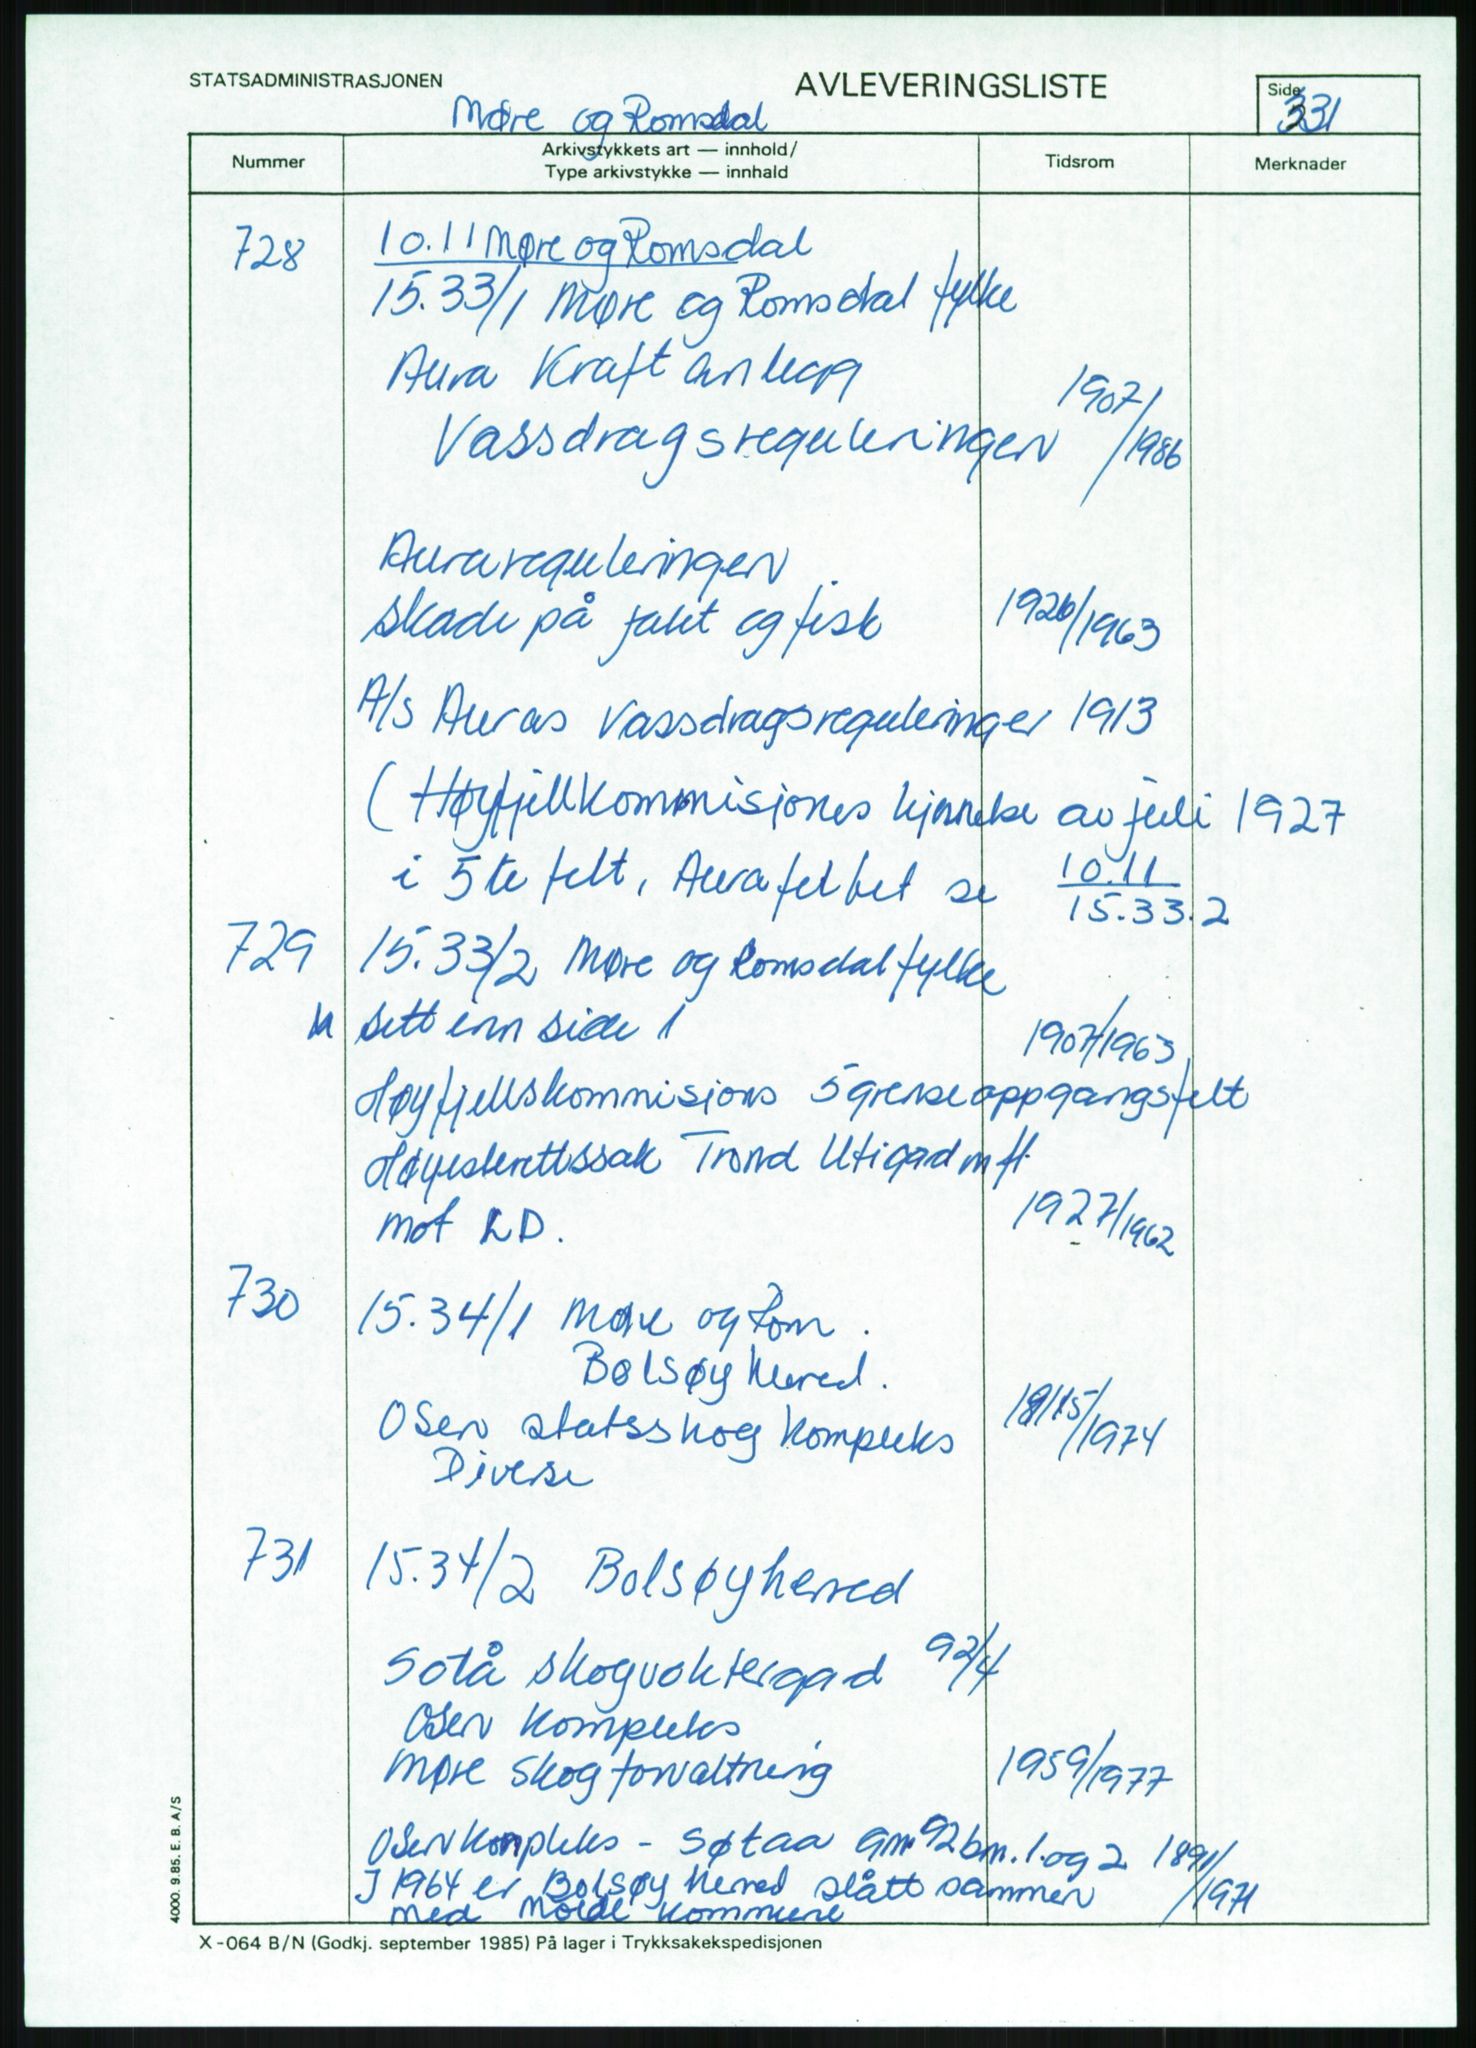 STATSADMINISTRASJONEN
AVLEVERINGSLISTE
Side
331
Møre og Romsdal
Nummer
Arkivstykkets art — innhold/
Type arkivstykke — innhald
Tidsrom
Merknader
728
10.11 Møre og Romsdal
15.33/1 Møre og Romsdal fylke
Aura Kraftanlegg
Vassdragsreguleringen 1907/1986
Aurareguleringen
skade på jakt og fisk 1926/1963
A/s Auras vassdragsreguleringer 1913
(Høyfjellkommisjones kjennelse av juli 1927
i 5te felt, Aurafeltet se 10.11
15.33.2
729 15.33/2 Møre og Romsdal fylke
sett inn side 1 1907/1963
Høyfjellskommisjons 5 grenseoppgangsfelt
Høyesterettssak Trond Utigard m fl.
mot LD. 1927/1962
730 15.34/1 Møre og Rom.
Bolsøy herred.
Osen statsskog kompleks /1974
Diverse
731 15.34/2 Bolsøy herred
Sotå skogvoktergard 92/4
Osen kompleks
Møre skogforvaltning 1959/1977
Osen kompleks - Søtaa gnr 92 bnr. 1. og 2 1891/1971
I 1964 er Bolsøy herred slått sammen
med Molde kommune
4000. 9.85. E. B. A/S
X-064 B/N (Godkj. september 1985) På lager i Trykksakekspedisjonen